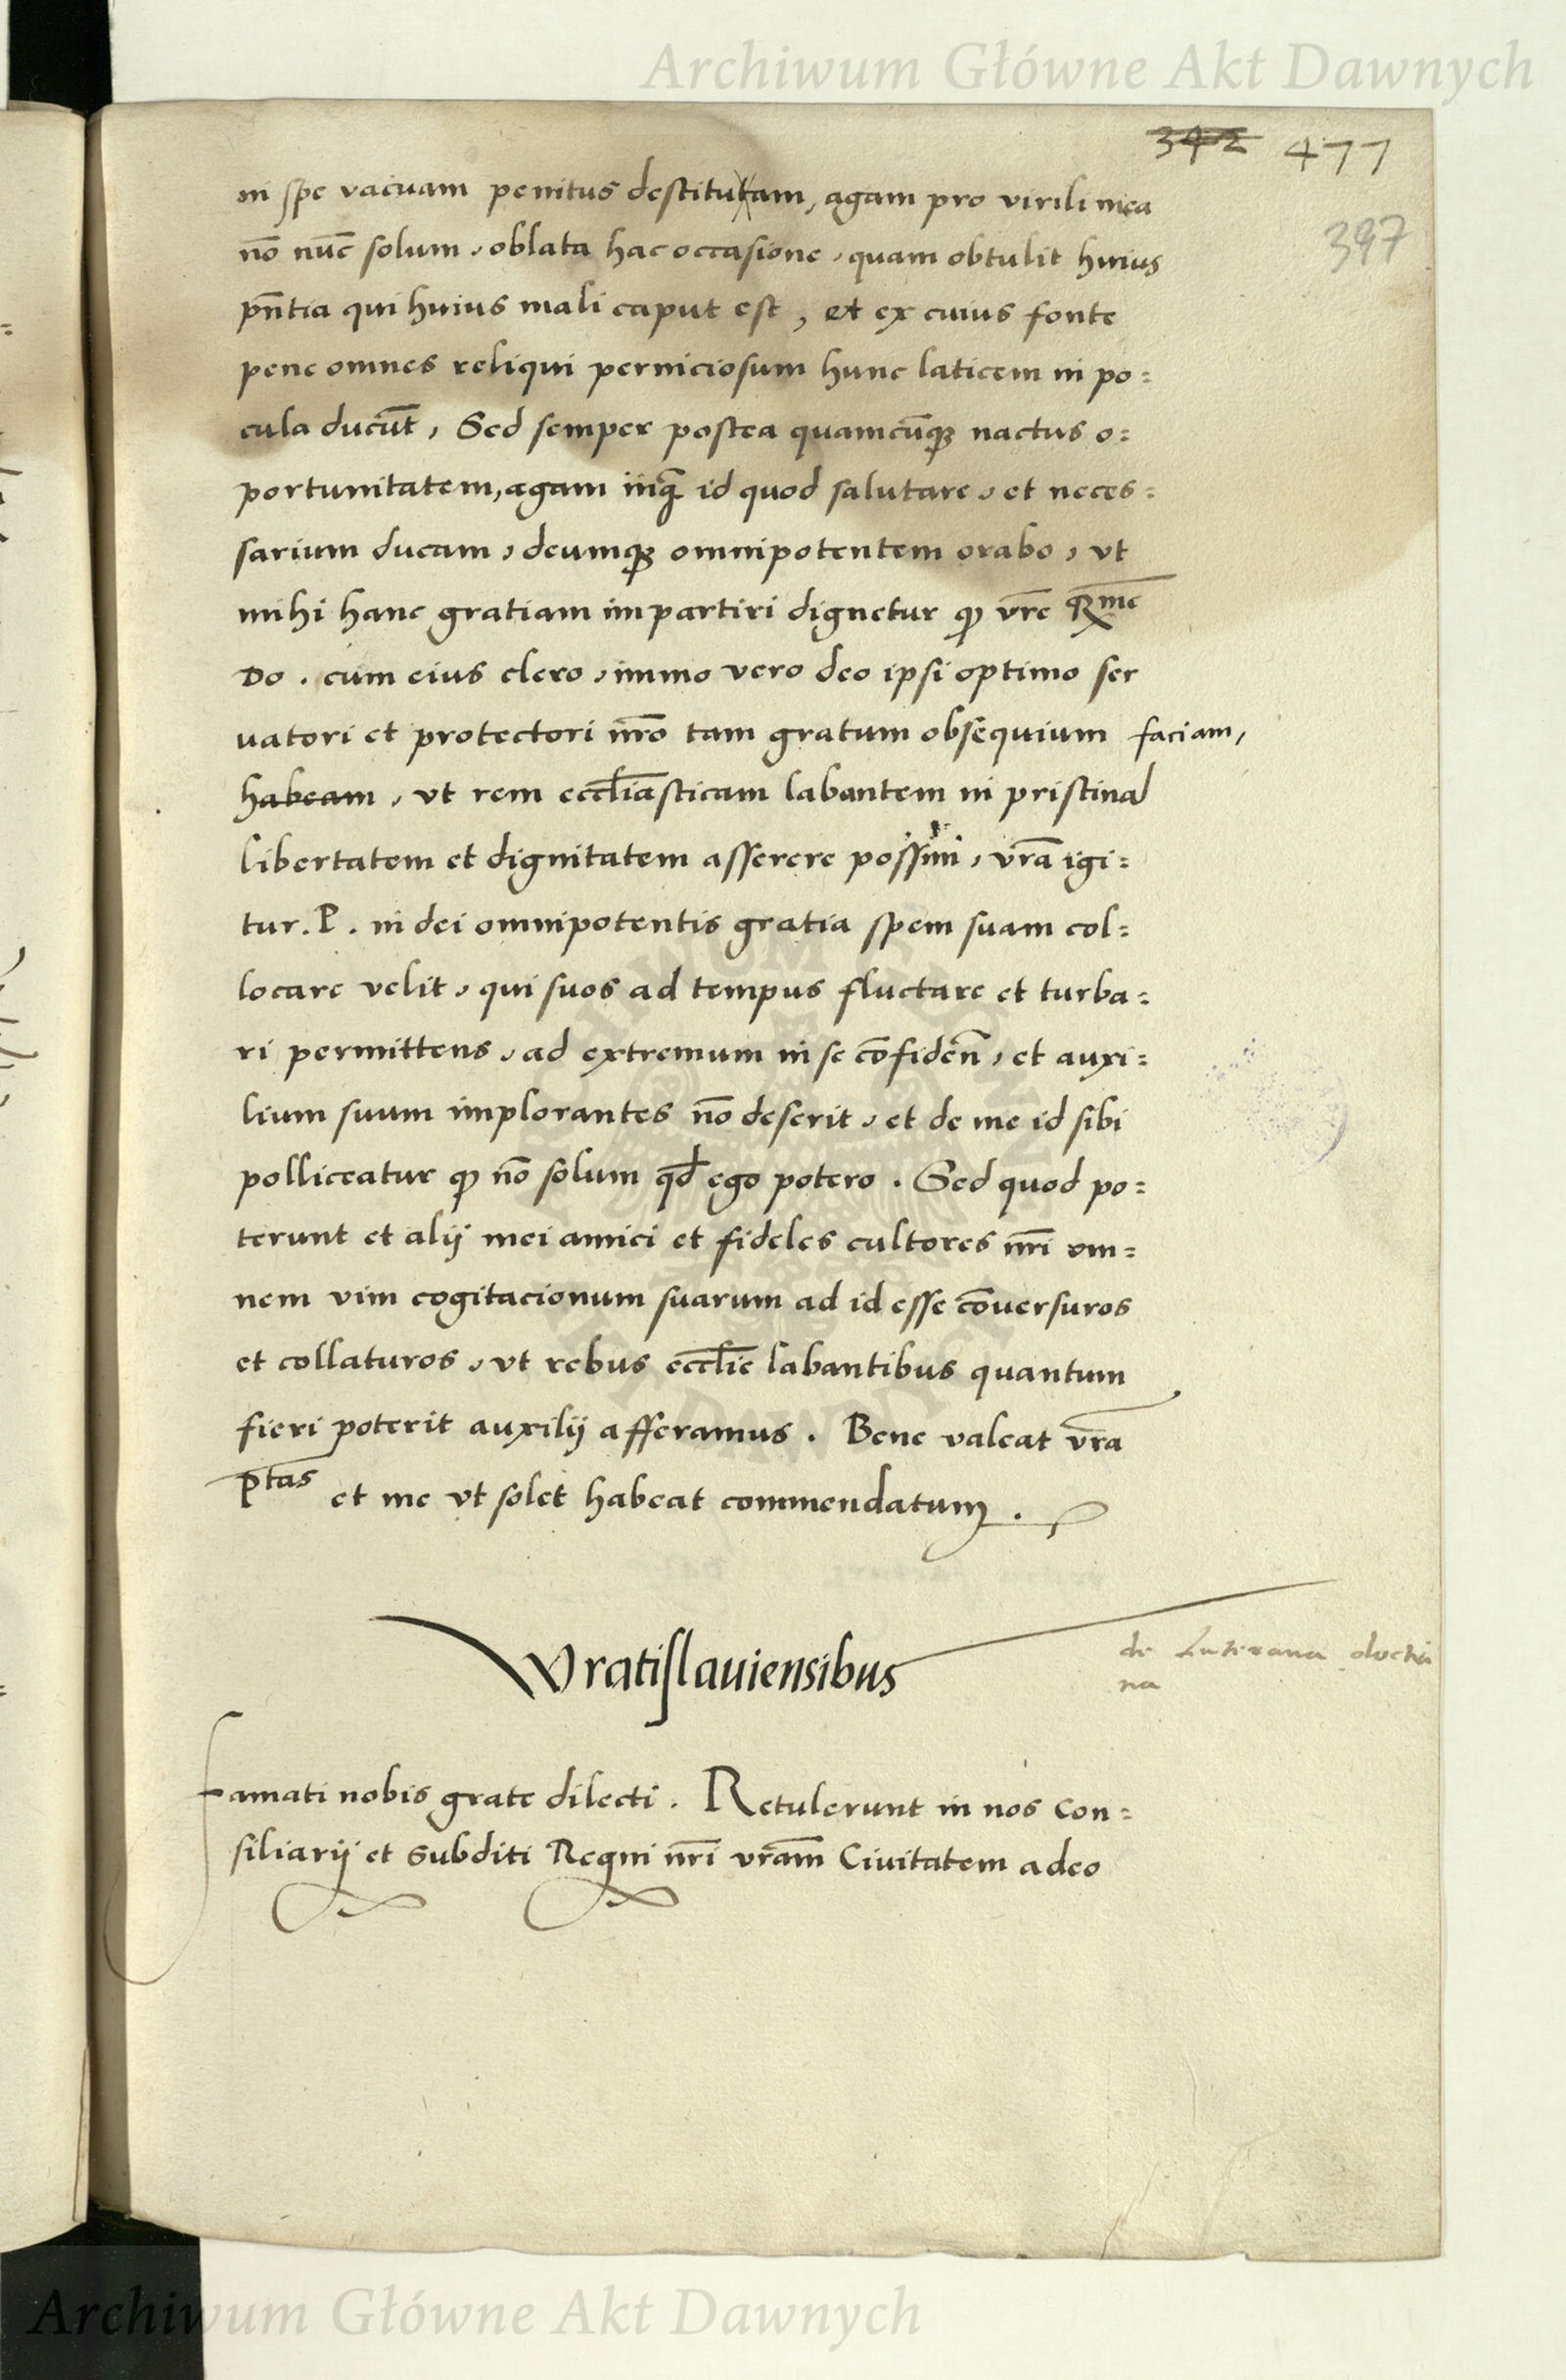 Archiwum Główne Akt Dawnych
342 477
397
in spe vacuam penitus destitutam, agam pro virili mea
nō nūc solum, oblata hac occasione, quam obtulit huius
pn̄tia qui huius mali caput est, et ex cuius fonte
pene omnes reliqui perniciosum hunc laticem in po=
cula ducūt, Sed semper postea quamcūqꝫ nactus o=
portunitatem, agam inq̄ id quod salutare, et neces=
sarium ducam, deumqꝫ omnipotentem orabo, vt
mihi hanc gratiam impartiri dignetur ꝙ vr̄e R̄me
Do. cum eius clero, immo vero deo ipsi optimo ser
uatori et protectori nr̄o tam gratum obsequium faciam,
habeam, vt rem eccl̄iasticam labantem in pristinā
libertatem et dignitatem asserere possim, vr̄a igi=
tur. P. in dei omnipotentis gratia spem suam col=
locare velit, qui suos ad tempus fluctare et turba=
ri permittens, ad extremum in se cōfiden̄, et auxi=
lium suum implorantes nō deserit, et de me id sibi
polliceatur ꝙ nō solum qđ ego potero. Sed quod po=
terunt et alij mei amici et fideles cultores nr̄i om=
nem vim cogitacionum suarum ad id esse cōuersuros
et collaturos, vt rebus eccl̄ie labantibus quantum
fieri poterit auxilij afferamus. Bene valeat vr̄a
Ptas et me vt solet habeat commendatum.
Wratislauiensibus
de Luterana doctri
na
Famati nobis grate dilecti. Retulerunt in nos Con=
siliarij et Subditi Regni nr̄i vr̄am Ciuitatem adeo
Archiwum Główne Akt Dawnych